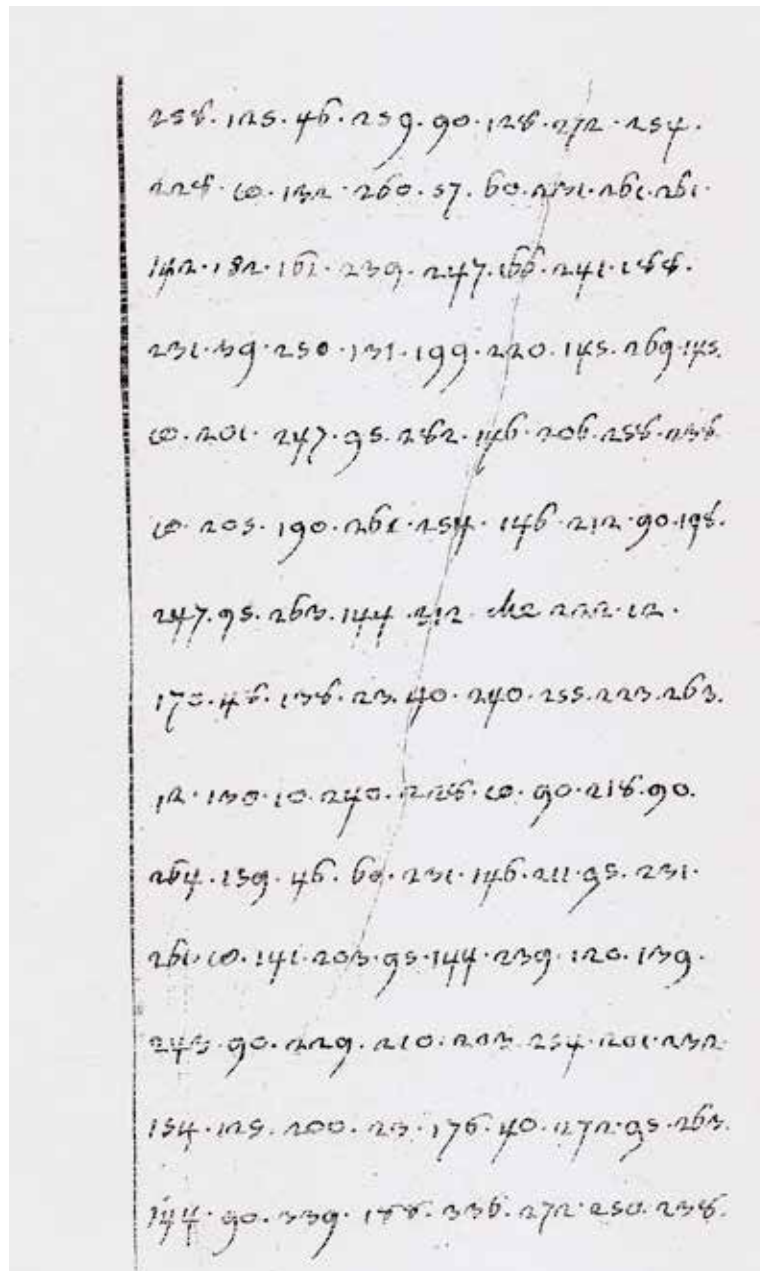 258. 125. 46. 259. 90. 128. 272. 254.
228. 60. 132. 260. 57. 60. 231. 261. 261.
142. 182. 161. 239. 247. 166. 241. 188.
231. 39. 250. 131. 199. 220. 145. 269. 145.
60. 201. 247. 95. 282. 146. 206. 258. 236.
60. 205. 190. 261. 254. 146. 212. 90. 198.
247. 95. 263. 144. 212. 222. 12.
170. 48. 138. 23. 40. 240. 255. 223. 263.
12. 130. 10. 240. 228. 60. 90. 218. 90.
264. 159. 46. 60. 231. 146. 211. 95. 231.
261. 60. 141. 203. 95. 144. 239. 120. 139.
243. 90. 229. 210. 254. 201. 232.
154. 125. 200. 23. 176. 40. 272. 95. 263.
144. 90. 339. 188. 336. 272. 250. 238.